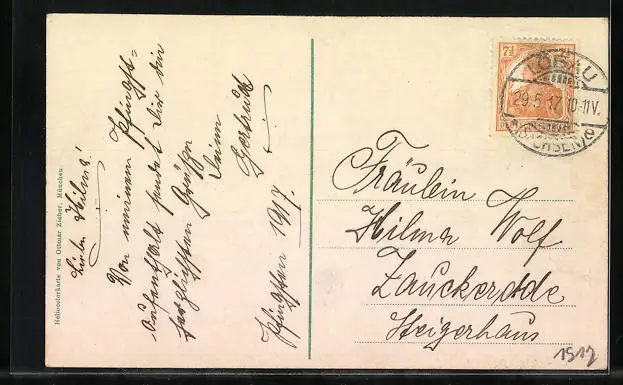 Liebe Hilma!
Von meinem Pfingst-
Aufenthalt sendet Dir die
herzlichsten Grüße
Deine
Gertrud
Pfingsten 1917.
Heliocolorkarte von Ottmar Zieher, München
7½
LÖBAU
29.5.17 10-11V.
(SACHSEN)
Fräulein
Hilma Wolf
Zauckerode
Steigerhaus
1917